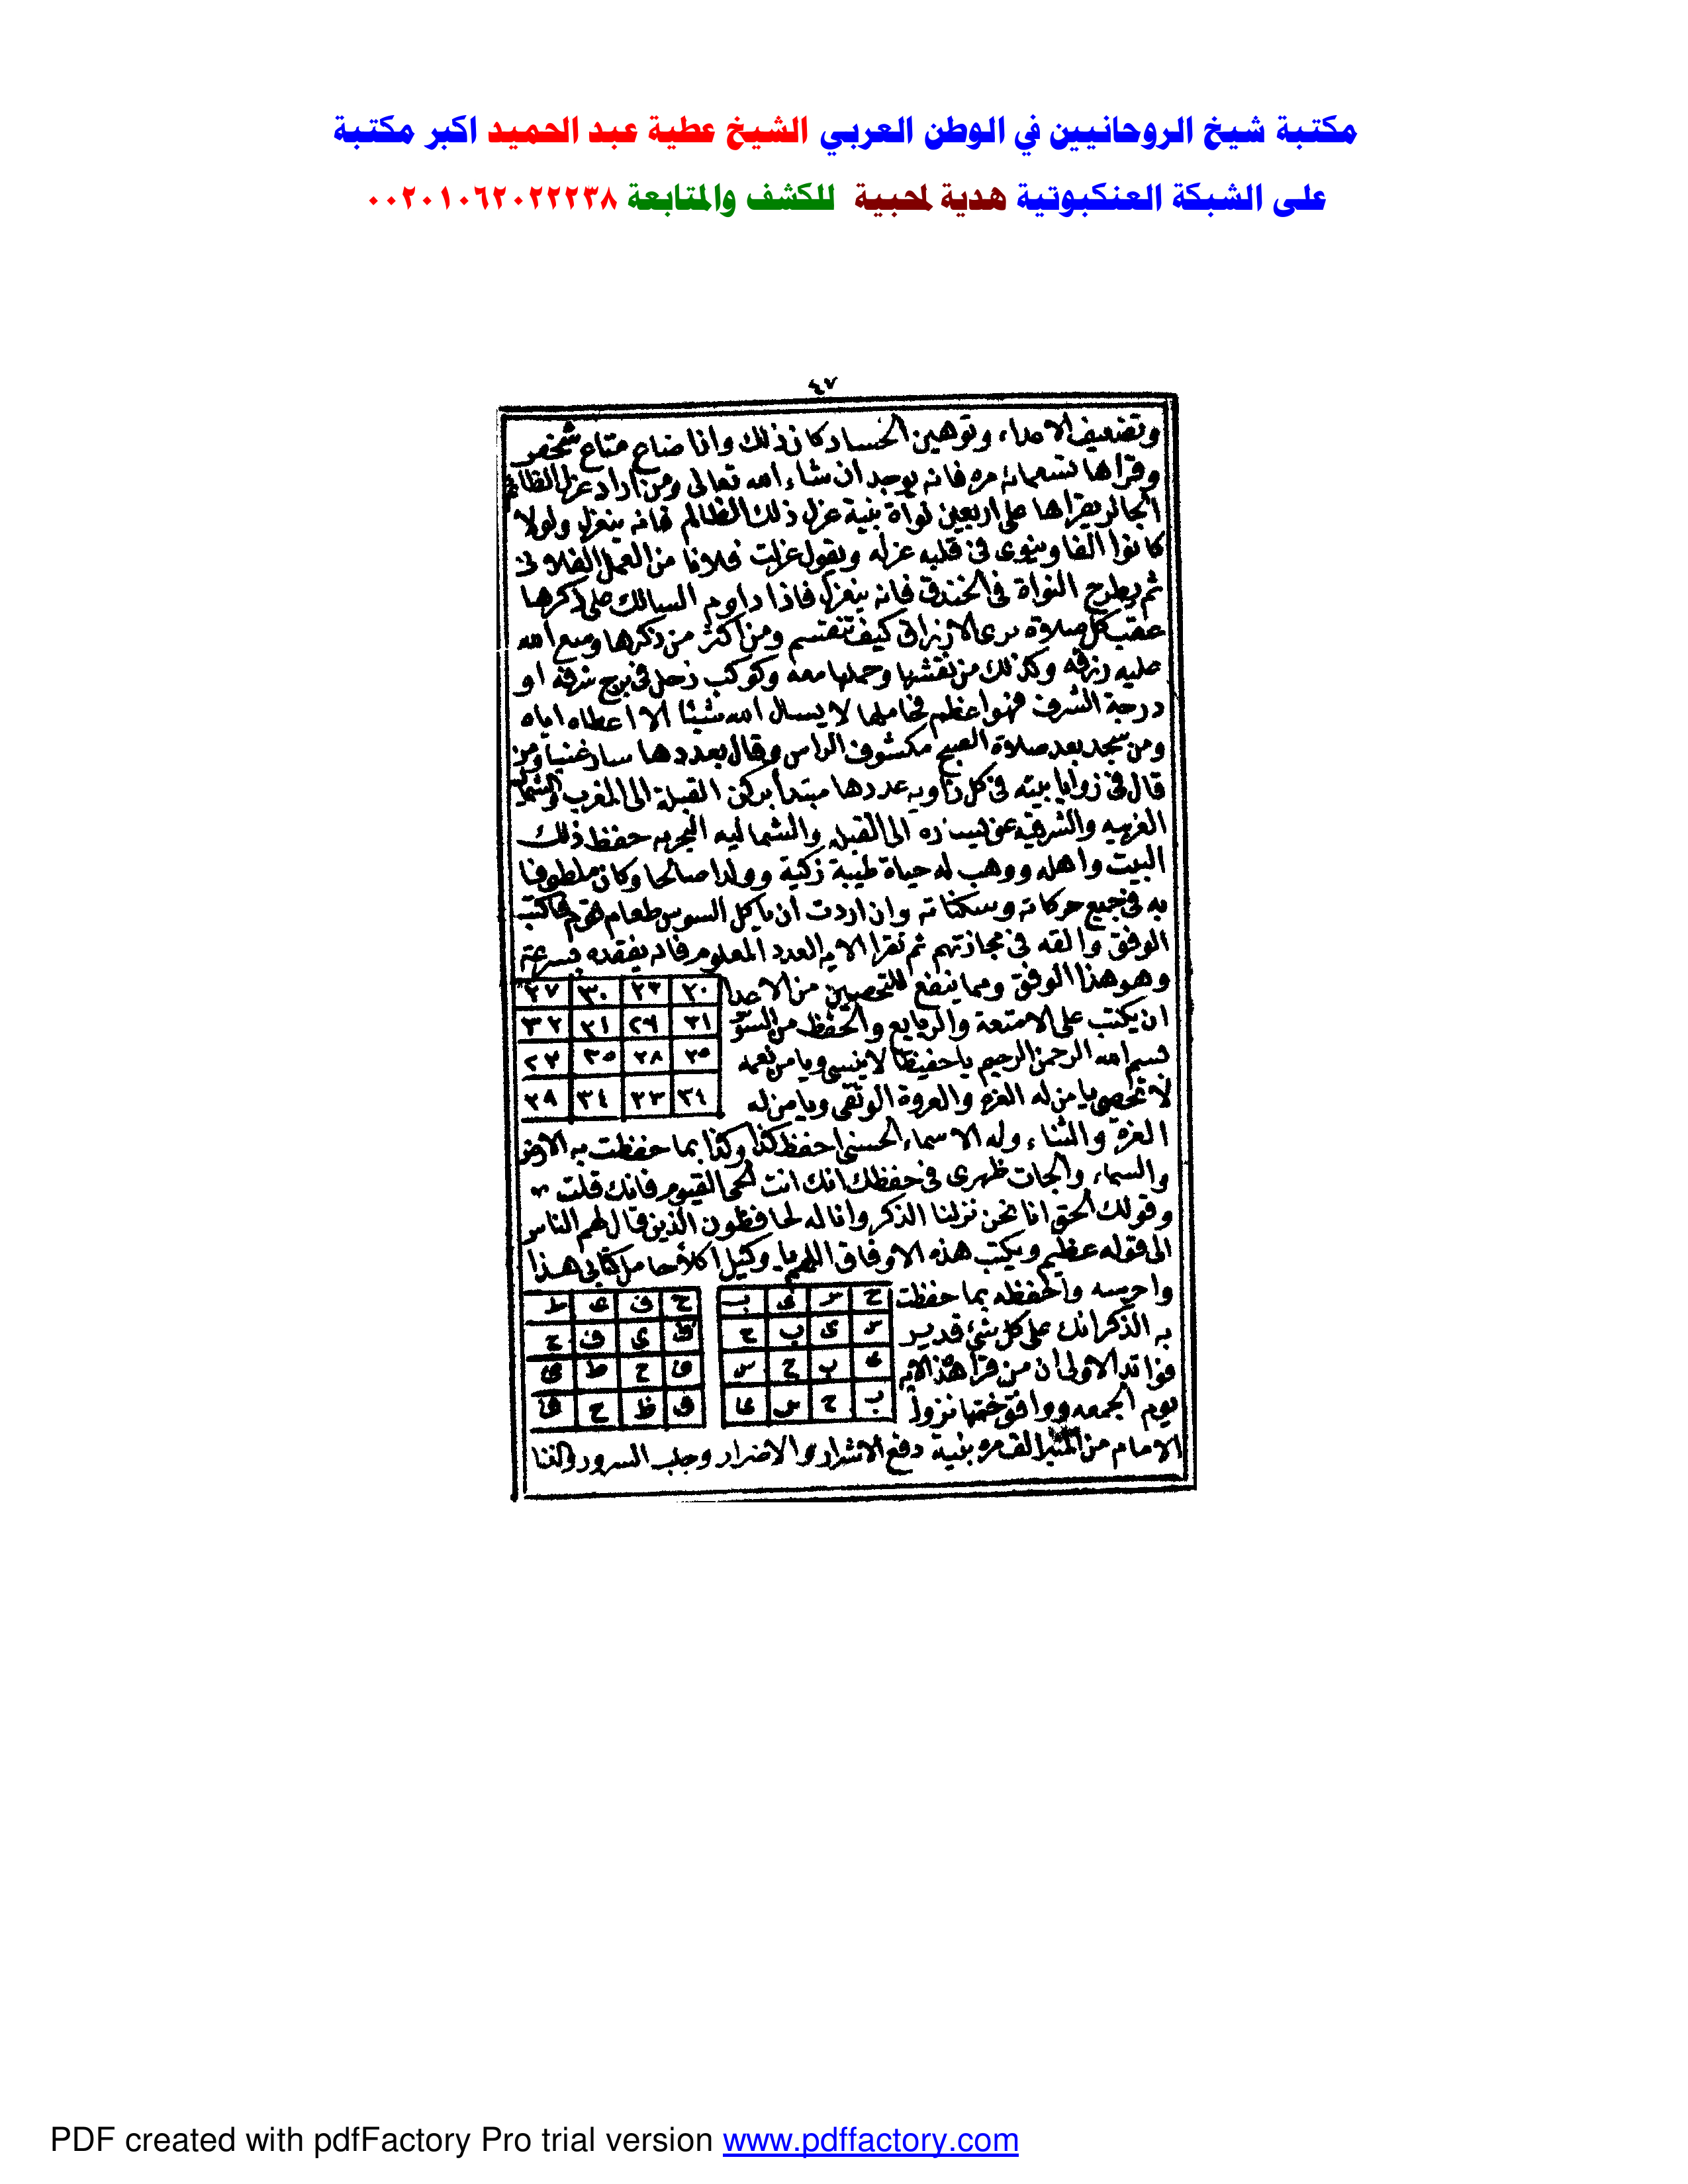 مكتبة شيخ الروحانيين في الوطن العربي الشيخ عطية عبد الحميد اكبر مكتبة
على الشبكة العنكبوتية هدية لمحبية للكشف والمتابعة ٠٠٢٠١٠٦٢٠٢٢٢٣٨
٤٧
وتضعيف الاعداء وتوهين الحساد كان ذلك واذا ضاع متاع شخص
وقراها تسعمائة مره فانه يوجد ان شاء الله تعالى ومن اراد عزل الظالم
الجائر يقراها على اربعين نواة بنية عزل ذلك الظالم فانه ينعزل ولولا
كانوا الفا وينوى فى قلبه عزله ويقول عزلت فلانا من العمل الفلانى
ثم يطرح النواة فى الخندق فانه ينعزل فاذا داوم السالك على ذكرها
عقب كل صلاة يرى الارزاق كيف تنقسم ومن اكثر من ذكرها وسع الله
عليه رزقه وكذلك من نقشها وحملها معه وكوكب زحل فى برج شرفه او
درجة الشرف فهو اعظم فحاملها لا يسال الله شيئا الا اعطاه اياه
ومن سجد بعد صلاة الصبح مكشوف الراس وقال بعددها ساد غنيا ومن
قال فى زوايا بيته فى كل زاويه عددها مبتدأ بركن القبلة الى المغرب
الغربيه والشرقيه عن يساره الى القبله والشماليه البحريه حفظ ذلك
البيت واهله ووهب له حياة طيبة زكية وولدا صالحا وكان ملطوفا
به فى جميع حركاته وسكناته وان اردت ان ياكل السوس طعام قوم فاكتب
الوفق والقه فى مجازتهم ثم تقرا الايه العدد المعلوم فانه يفقده بسرعة
وهو هذا الوفق ومما ينفع للتحصين من الاعدا
ان يكتب على الامتعة والربايع والحفظ من السو
بسم الله الرحمن الرحيم يا حفيظا لا ينسى ويا من نعمه
لا تحصى يا من له العزه والعروة الوثقى ويا من له
٢٠ ٢٣ ٣٠ ٢٧
٣١ ٢٦ ٢١ ٣٢
٢٥ ٢٨ ٣٥ ٢٢
٢٤ ٣٣ ٣٤ ٢٩
العزة والثناء وله الاسماء الحسنى احفظ كذا وكذا بما حفظت به الارض
والسماء والجات ظهرى فى حفظك انك انت الحى القيوم فانك قلت
وقولك الحق انا نحن نزلنا الذكر وانا له لحافظون الذين قال لهم الناس
الى قوله عظيم ويكتب هذه الاوفاق اللهم يا وكيل اكلأ حامل كتابى هذا
واحرسه واحفظه بما حفظت
به الذكر انك على كل شئ قدير
فوائد الاولى ان من قرا هذه الايه
يوم الجمعه ووافق ختمها نزول
ح س ى ب
س ى ب ح
ى ب ح س
ب ح س ى
ح ف ى ظ
ظ ى ف ح
ف ح ظ ى
ف ظ ح ى
الامام من المنبر الف مره بنية دفع الاشرار والاضرار وجلب السرور والغنا
PDF created with pdfFactory Pro trial version www.pdffactory.com